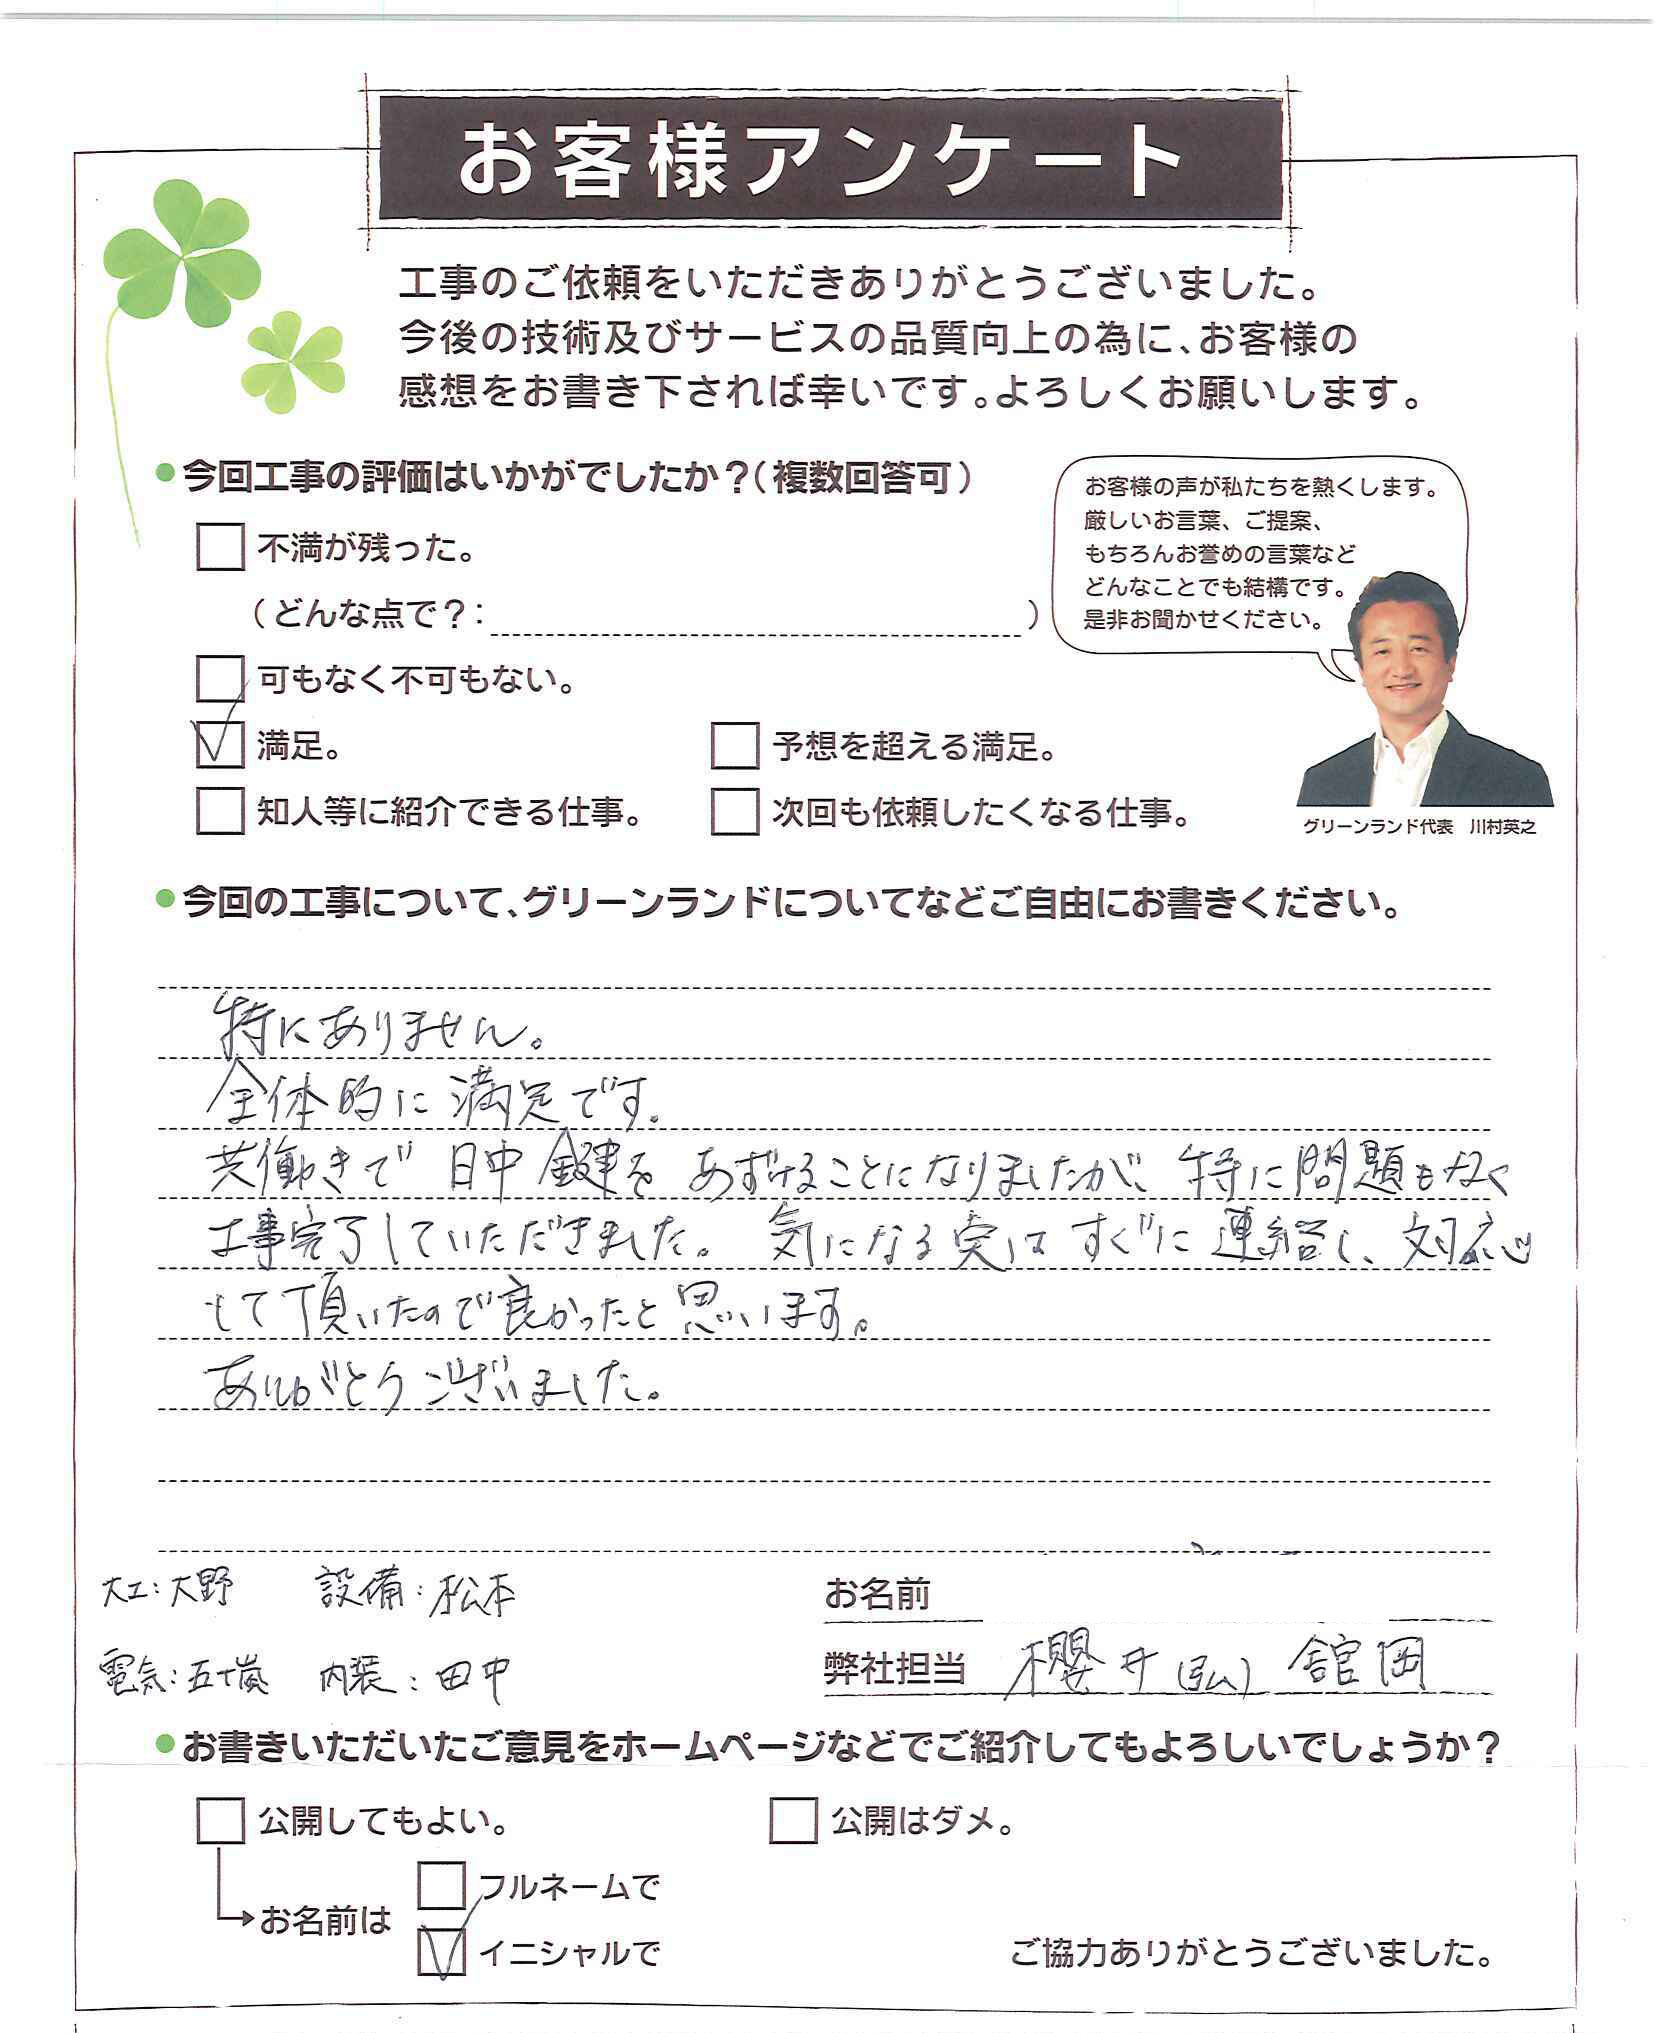 お客様アンケート
工事のご依頼をいただきありがとうございました。
今後の技術及びサービスの品質向上の為に、お客様の
感想をお書き下されれば幸いです。よろしくお願いします。
今回工事の評価はいかがでしたか？（複数回答可）
不満が残った。
（どんな点で？：　）
可もなく不可もない。
満足。
予想を超える満足。
知人等に紹介できる仕事。
次回も依頼したくなる仕事。
お客様の声が私たちを熱くします。
厳しいお言葉、ご提案、
もちろんお誉めの言葉など
どんなことでも結構です。
是非お聞かせください。
グリーンランド代表　川村英之
今回の工事について、グリーンランドについてなどご自由にお書きください。
特にありません。
全体的に満足です。
共働きで 日中 鍵を あずけることになりましたが、特に問題もなく
工事完了していただきました。気になる実はすぐに連絡し、対応
して頂いたので良かったと思います。
ありがとうございました。
大工：大野　設備：松本
電気：五十嵐　内装：田中
お名前
弊社担当　櫻井(弘)　舘岡
お書きいただいたご意見をホームページなどでご紹介してもよろしいでしょうか？
公開してもよい。
公開はダメ。
お名前は
フルネームで
イニシャルで
ご協力ありがとうございました。